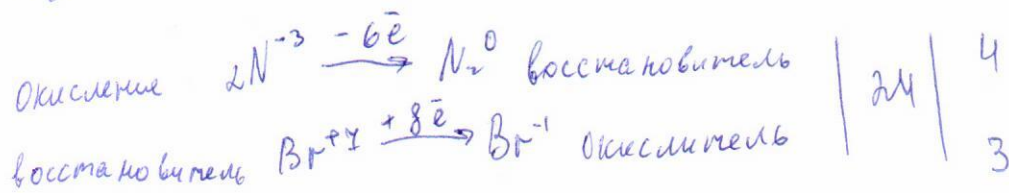 Окисление 2N⁻³ −6ē → N₂⁰ восстановитель | 24 | 4
восстановитель Br⁺⁷ +8ē → Br⁻¹ окислитель 3